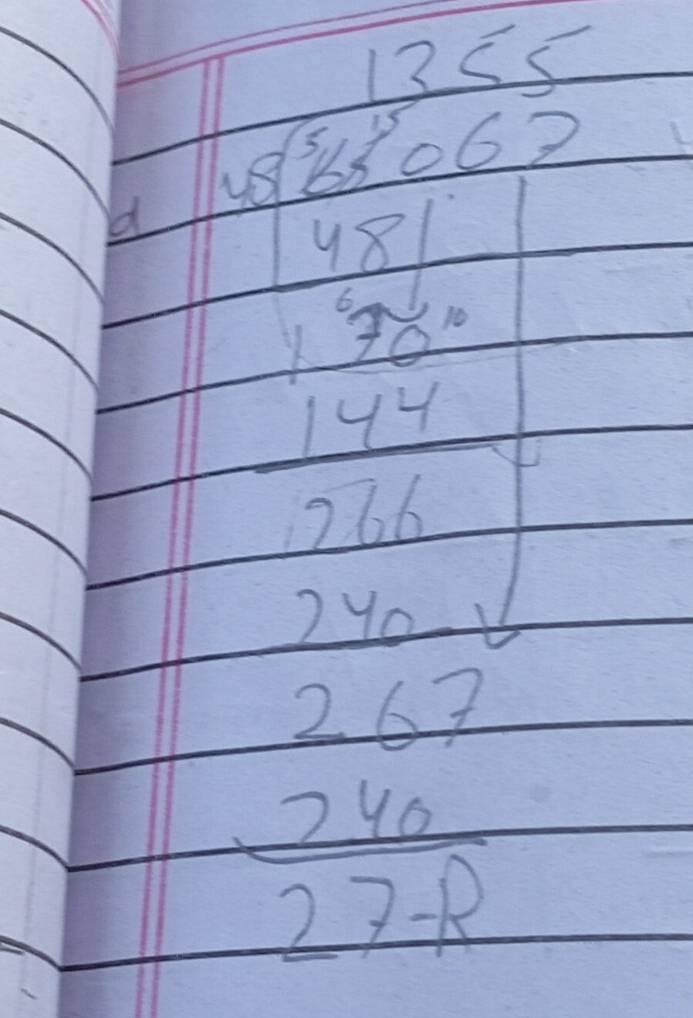 1355
48 5 65 15 067
d
48
6 170 10
144
266
240
267
240
27-R